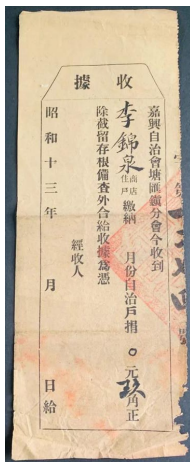 收據
嘉興自治會塘匯鎮分會今收到
李錦泉 商店住戶 繳納 月份自治戶捐 〇元玖角正
除截留存根備查外合給收據為憑
經收人
昭和十三年 月 日給
字第 號